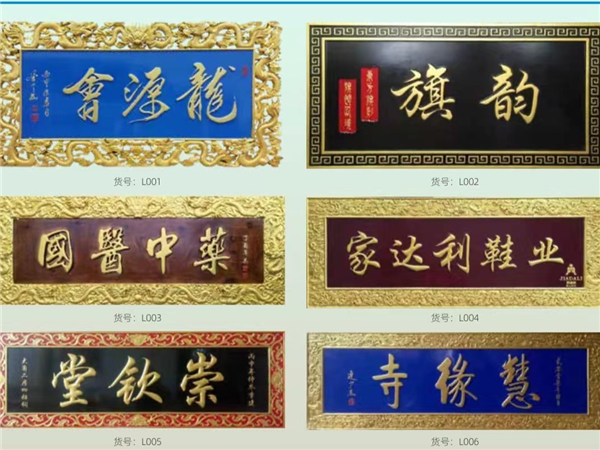 龍源會
货号：L001
韵旗
货号：L002
藥中醫國
货号：L003
家达利鞋业
货号：L004
崇欽堂
货号：L005
慧緣寺
货号：L006